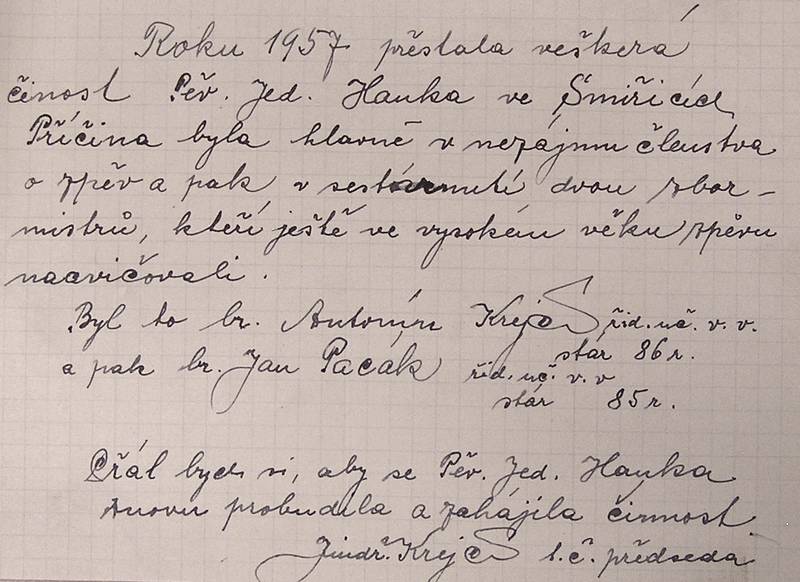 Roku 1957 přestala veškerá
činost Pěv. Jed. Hanka ve Smiřicích
Příčina byla hlavně v nezájmu členstva
o zpěv a pak v sestárnutí dvou sbor-
mistrů, kteří ještě ve vysokém věku zpěvu
nacvičovali.
Byl to br. Antonín Krejčí říd. uč. v. v.
stár 86 r.
a pak br. Jan Pacák říd. uč. v. v
stár 85 r.
Přál bych si, aby se Pěv. Jed. Hanka
znovu probudila a zahájila činnost
Jindř. Krejčí t. č. předseda